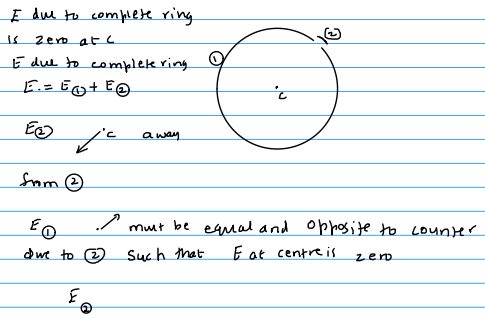 E due to complete ring
is zero at C
E due to complete ring
E = E① + E②
①
②
c
E② c away
from ②
E① must be equal and opposite to counter
due to ② such that E at centre is zero
E②